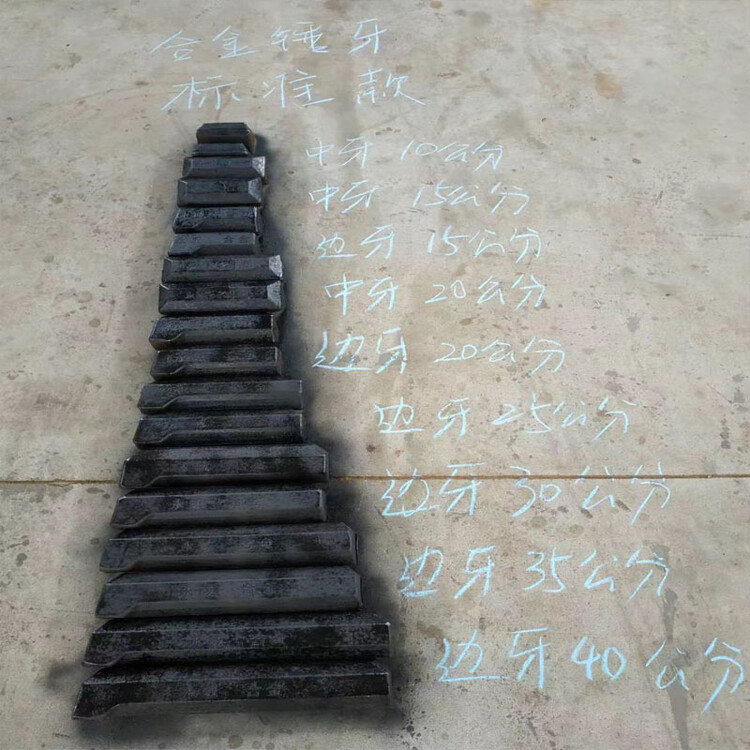 合金锒牙
标准款
中牙 10公分
中牙 15公分
边牙 15公分
中牙 20公分
边牙 20公分
边牙 25公分
边牙 30公分
边牙 35公分
边牙 40公分